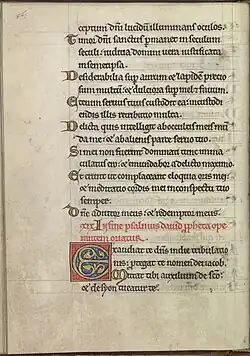 ceptum dñi lucidū illuminans oculos.
Timor dñi sanctus p̄manet in seculum
seculi: iudicia domini uera iustificata
in semetipsa.
Desiderabilia sup aurum et lapidem precio
sum multū: et dulciora sup mel et fauum.
Etenim seruus tuus custodit ea: in custodi
endis illis retributio multa.
Delicta quis intelligit ab occultis meis mun
da me: et ab alienis parce seruo tuo.
Si mei non fuerint dominati tunc inma
culatus ero: et emundabor a delicto maximo.
Et erunt ut complaceant eloquia oris mei:
et meditatio cordis mei in conspectu tuo
semper.
Dñe adiutor meus: et redemptor meus.
psalmus dauid
Exaudiat te dñs in die tribulatio
nis: protegat te nomen dei iacob.
Mittat tibi auxilium de sc̄o:
et de syon tueatur te.